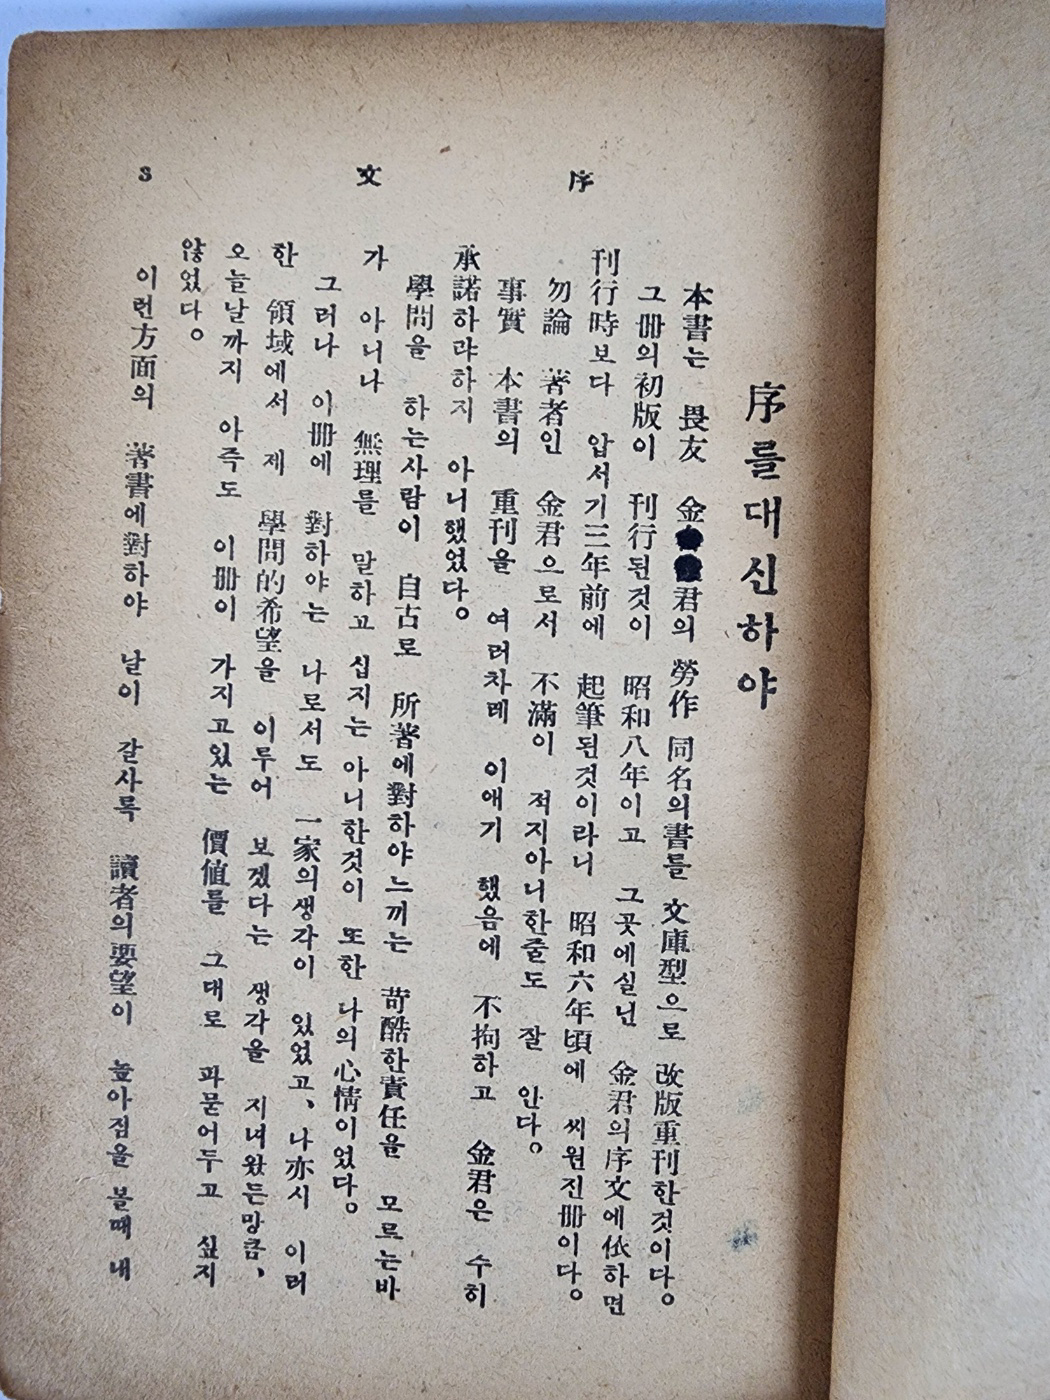 序를대신하야
本書는 畏友 金 君의 勞作 同名의書를 文庫型으로 改版重刊한것이다。
그冊의初版이 刊行된것이 昭和八年이고 그곳에실닌 金君의序文에依하면
刊行時보다 압서기三年前에 起筆된것이라니 昭和六年頃에 씨원진冊이다。
勿論 著者인 金君으로서 不滿이 적지아니한줄도 잘 안다。
事實 本書의 重刊을 여러차레 이얘기 했음에 不拘하고 金君은 수히
承諾하랴하지 아니했었다。
學問을 하는사람이 自古로 所著에對하야느끼는 苛酷한責任을 모르는바
가 아니나 無理를 말하고 십지는 아니한것이 또한 나의心情이었다。
그러나 이冊에 對하야는 나로서도 一家의생각이 있었고、나亦시 이러
한 領域에서 제 學問的希望을 이루어 보겠다는 생각을 지녀왔든망큼、
오늘날까지 아즉도 이冊이 가지고있는 價値를 그대로 파묻어두고 싶지
않었다。
이런方面의 著書에對하야 날이 갈사록 讀者의要望이 높아짐을 볼때 내
序 文 3